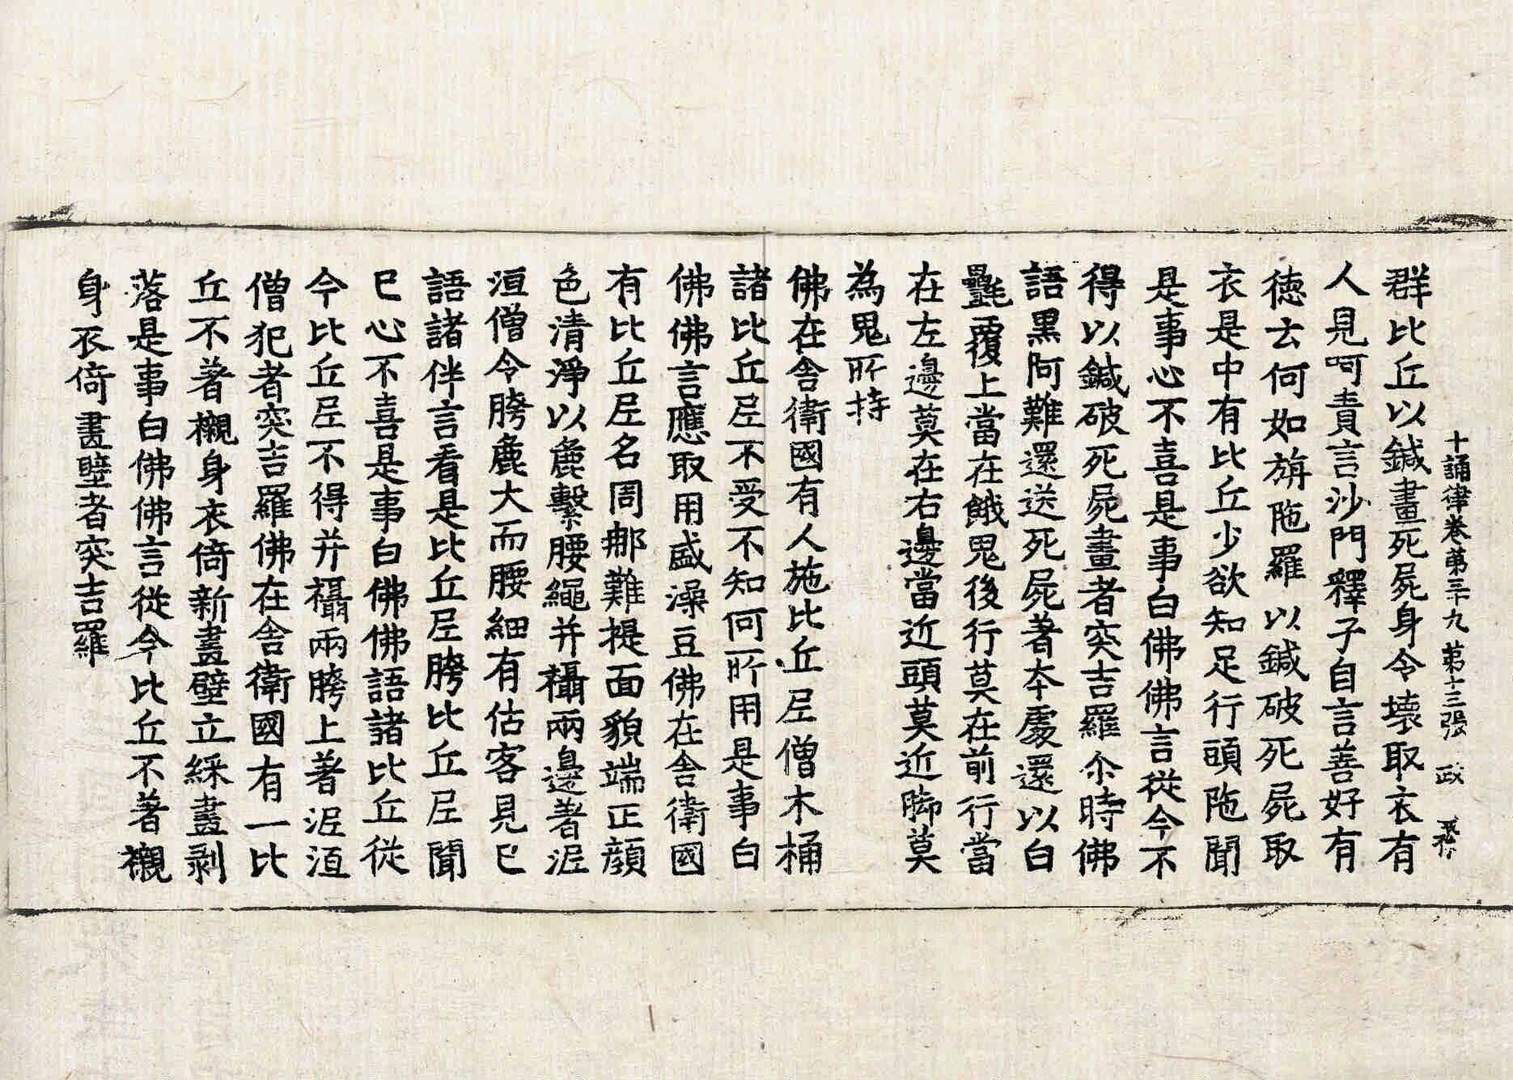 十誦律卷第三十九 第十三張 政
群比丘以鍼畫死屍身令壞取衣有
人見呵責言沙門釋子自言善好有
德云何如旃陁羅以鍼破死屍取
衣是中有比丘少欲知足行頭陁聞
是事心不喜是事白佛佛言從今不
得以鍼破死屍畫者突吉羅尒時佛
語黑阿難還送死屍著本處還以白
㲲覆上當在餓鬼後行莫在前行當
在左邊莫在右邊當近頭莫近脚莫
為鬼所持
佛在舍衛國有人施比丘尼僧木桶
諸比丘尼不受不知何所用是事白
佛佛言應取用盛澡豆佛在舍衛國
有比丘尼名周那難提面貌端正顔
色清淨以麁繫腰繩并襵兩邊著泥
洹僧令胯麁大而腰細有估客見已
語諸伴言看是比丘尼胯比丘尼聞
已心不喜是事白佛佛語諸比丘從
今比丘尼不得并襵兩胯上著泥洹
僧犯者突吉羅佛在舍衛國有一比
丘不著襯身衣倚新畫壁立綵畫剥
落是事白佛佛言從今比丘不著襯
身衣倚畫壁者突吉羅